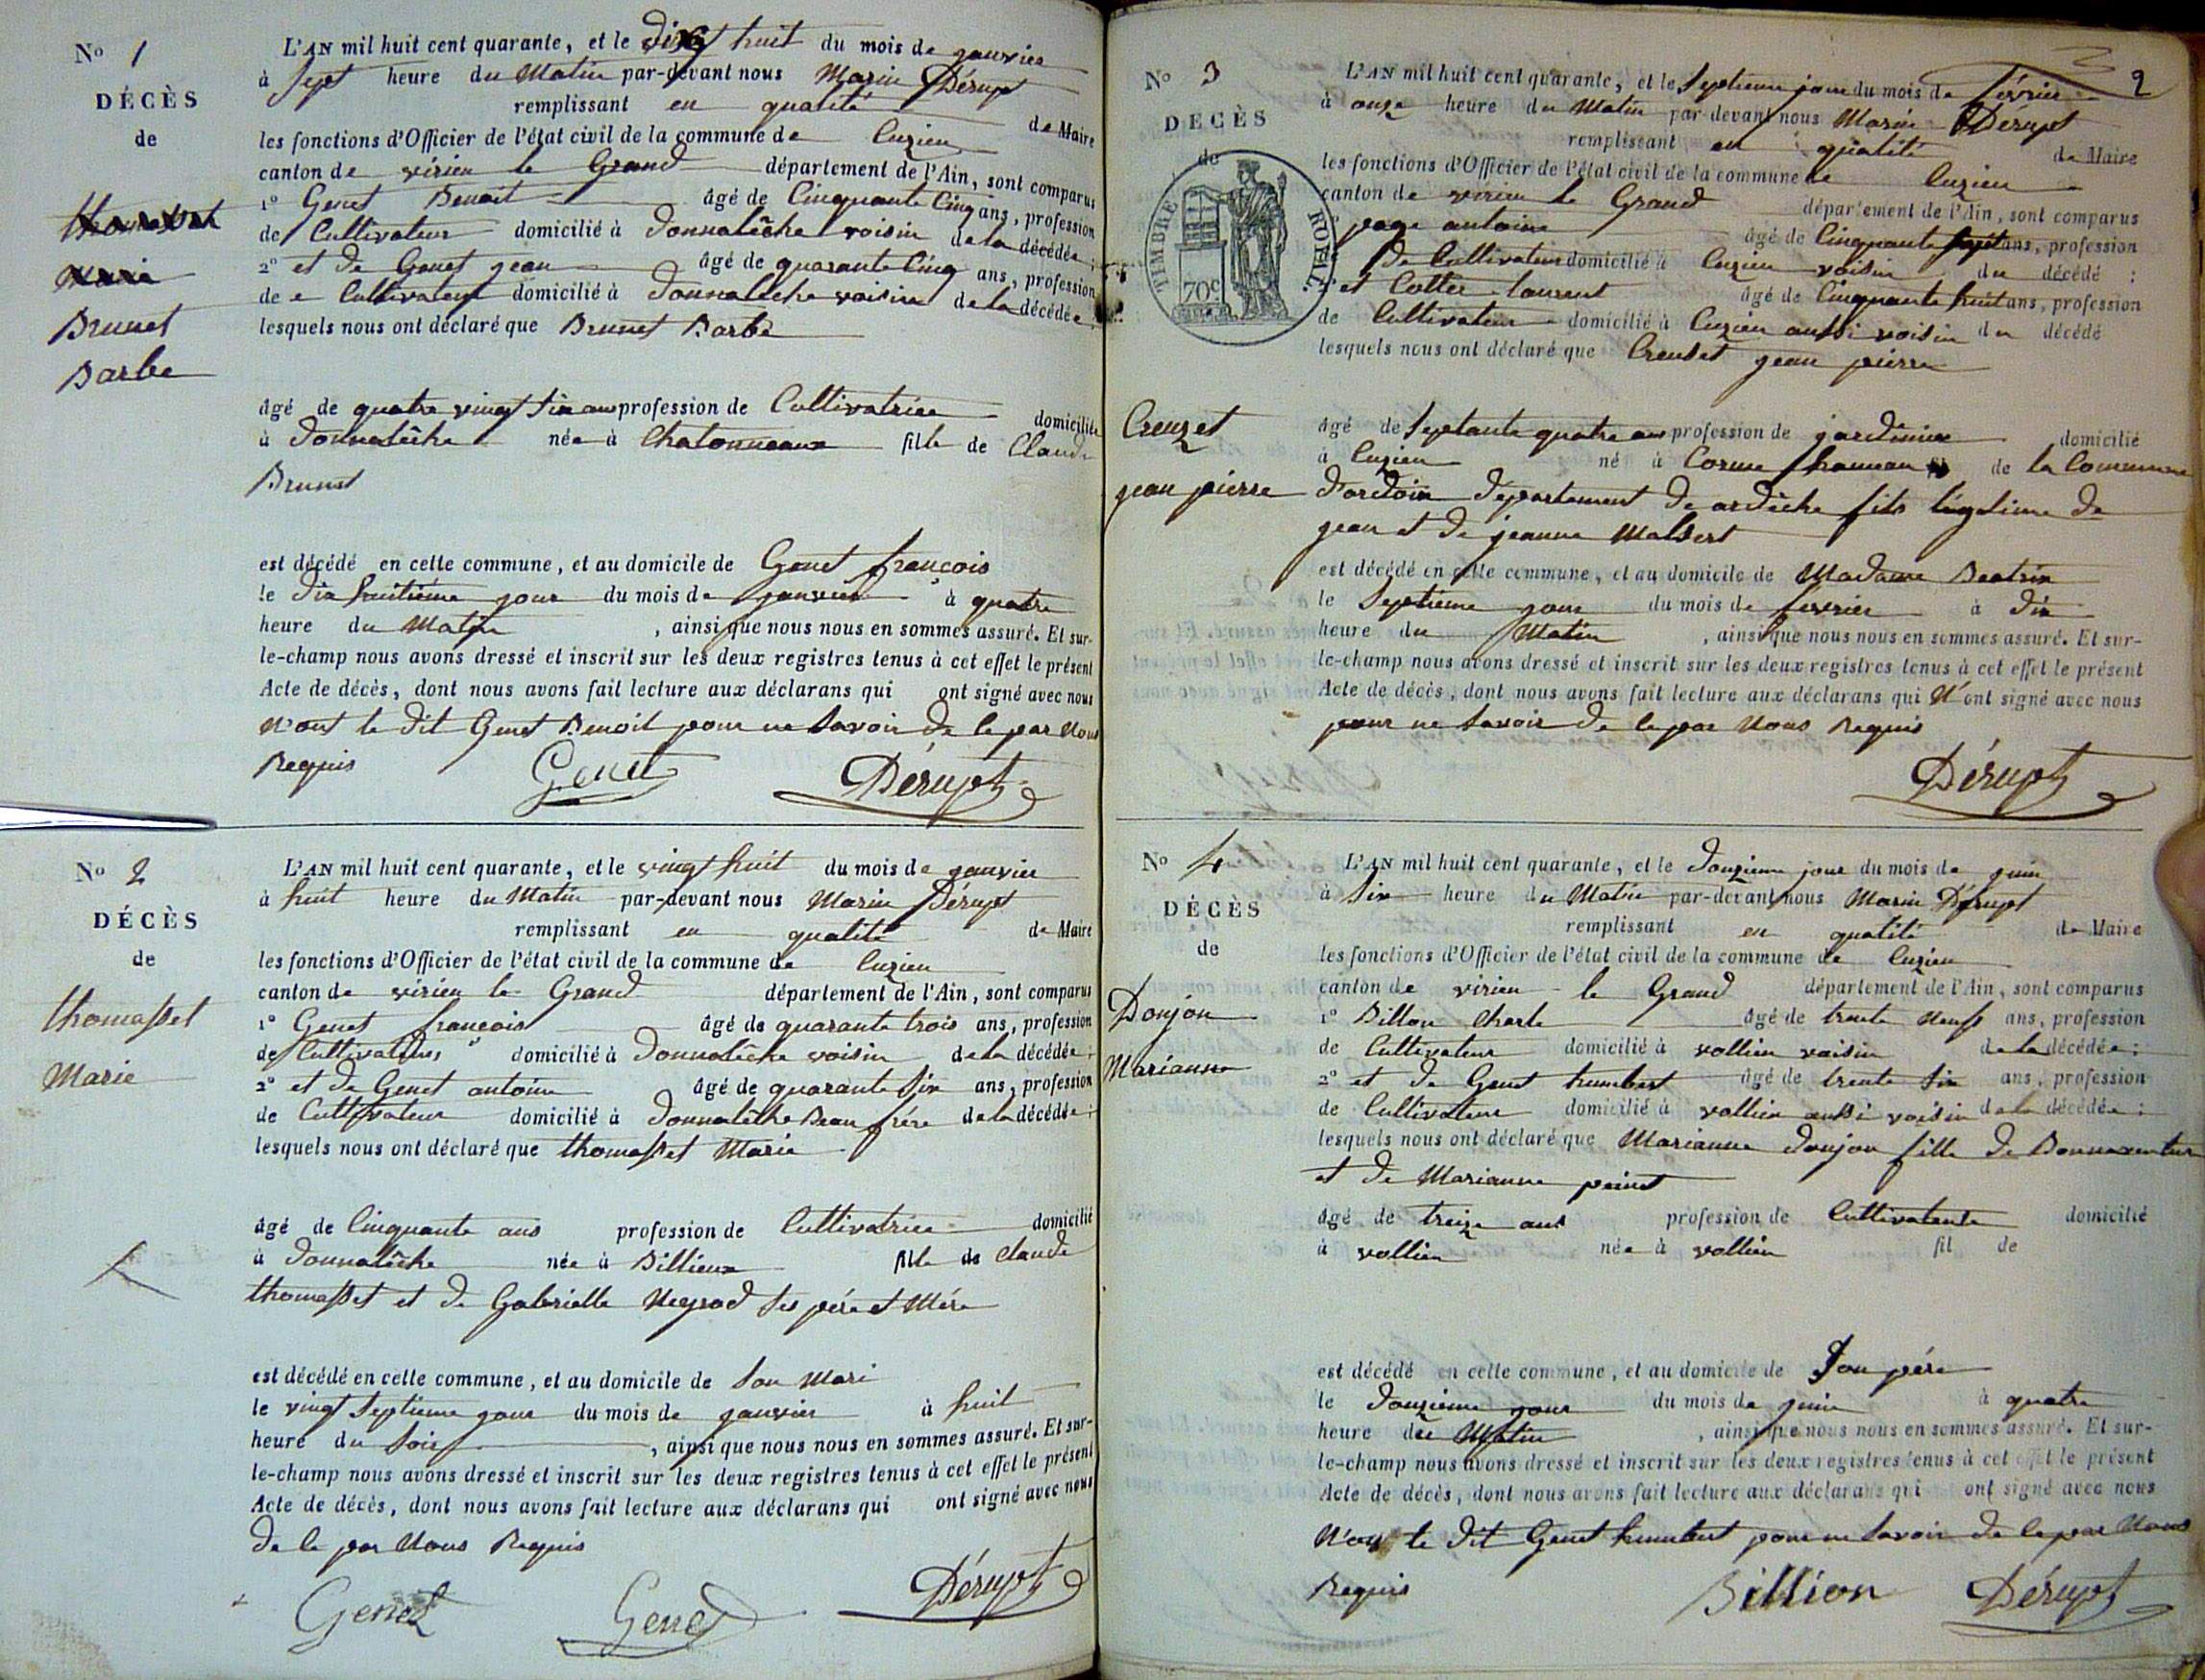 No 1
DÉCÈS
de
Brunet
Barbe
L'AN mil huit cent quarante, et le dix huit du mois de janvier
à sept heure du Matin par-devant nous Marin Dérupt
remplissant en qualité de Maire
les fonctions d'Officier de l'état civil de la commune de Cuzieu
canton de virieu le Grand département de l'Ain, sont comparus
1° Genet Benoit âgé de Cinquante Cinq ans, profession
de Cultivateur domicilié à Donnalêche voisin de la décédée;
2° et de Genet jean âgé de quarante Cinq ans, profession
de e Cultivateur domicilié à Donnaleche voisin de la décédée;
lesquels nous ont déclaré que Brunet Barbe
âgé de quatre vingt six ans profession de Cultivatrice domicilié
à Donnalêche née à Chatonneaux fille de Claude
Brunet
est décédé en cette commune, et au domicile de Genet françois
le dix huitième jour du mois de janvier à quatre
heure du Matin, ainsi que nous nous en sommes assuré. Et sur-
le-champ nous avons dressé et inscrit sur les deux registres tenus à cet effet le présent
Acte de décès, dont nous avons fait lecture aux déclarans qui ont signé avec nous
N'ont le dit Genet Benoit pour ne savoir de le par Nous
Requis
Genet Dérupt
No 2
DÉCÈS
de
thomasset
Marie
L'AN mil huit cent quarante, et le vingt huit du mois de janvier
à huit heure du Matin par-devant nous Marin Dérupt
remplissant en qualité de Maire
les fonctions d'Officier de l'état civil de la commune de Cuzieu
canton de virieu le Grand département de l'Ain, sont comparus
1° Genet françois âgé de quarante trois ans, profession
de Cultivateur domicilié à Donnalêche voisin de la décédée;
2° et de Genet antoine âgé de quarante six ans, profession
de Cultivateur domicilié à Donnalêche Beau frère de la décédée;
lesquels nous ont déclaré que thomasset Marie
âgé de Cinquante ans profession de Cultivatrice domicilié
à Donnalêche née à Billieux fille de Claude
thomasset et de Gabrielle Neyrod ses père et Mère
est décédé en cette commune, et au domicile de son Mari
le vingt septieme jour du mois de janvier à huit
heure du soir, ainsi que nous nous en sommes assuré. Et sur-
le-champ nous avons dressé et inscrit sur les deux registres tenus à cet effet le présent
Acte de décès, dont nous avons fait lecture aux déclarans qui ont signé avec nous
de le par Nous Requis
Genet Genet Dérupt
2
No 3
DÉCÈS
de
TIMBRE ROYAL.
70c
Creuzet
jean pierre
L'AN mil huit cent quarante, et le septieme jour du mois de février
à onze heure du Matin par-devant nous Marin Dérupt
remplissant en qualité de Maire
les fonctions d'Officier de l'état civil de la commune de Cuzieu
canton de virieu le Grand département de l'Ain, sont comparus
page antoine âgé de Cinquante sept ans, profession
de Cultivateur domicilié à Cuzieu voisin du décédé:
et Cotter laurent âgé de Cinquante huit ans, profession
de Cultivateur domicilié à Cuzieu aussi voisin du décédé
lesquels nous ont déclaré que Creuset jean pierre
âgé de septante quatre ans profession de jardinier domicilié
à Cuzieu né à Corme hameau de la Commune
d'ardoix departement de ardêche fils légitime de
jean et de jeanne Malbert
est décédé en cette commune, et au domicile de Madame Beatrix
le septième jour du mois de fevrier à dix
heure du Matin, ainsi que nous nous en sommes assuré. Et sur-
le-champ nous avons dressé et inscrit sur les deux registres tenus à cet effet le présent
Acte de décès, dont nous avons fait lecture aux déclarans qui N'ont signé avec nous
pour ne savoir de le par Nous Requis
Dérupt
No 4
DÉCÈS
de
Donjon
Marianne
L'AN mil huit cent quarante, et le Douzieme jour du mois de juin
à six heure du Matin par-devant nous Marin Dérupt
remplissant en qualité de Maire
les fonctions d'Officier de l'état civil de la commune de Cuzieu
canton de virieu le Grand département de l'Ain, sont comparus
1° Billon Charle âgé de trente Neuf ans, profession
de Cultivateur domicilié à vollien voisin de la décédée;
2° et de Genet humbert âgé de trente six ans, profession
de Cultivateur domicilié à vollien aussi voisin de la décédée;
lesquels nous ont déclaré que Marianne Donjon fille de Bonnaventure
et de Marianne peinet
âgé de treize ans profession de Cultivatente domicilié
à vollien née à vollien fil de
est décédé en cette commune, et au domicile de son père
le Douzieme jour du mois de juin à quatre
heure du Matin, ainsi que nous nous en sommes assuré. Et sur-
le-champ nous avons dressé et inscrit sur les deux registres tenus à cet effet le présent
Acte de décès, dont nous avons fait lecture aux déclarans qui ont signé avec nous
N'ont le dit Genet humbert pour ne savoir de le par Nous
Requis
Billion Dérupt